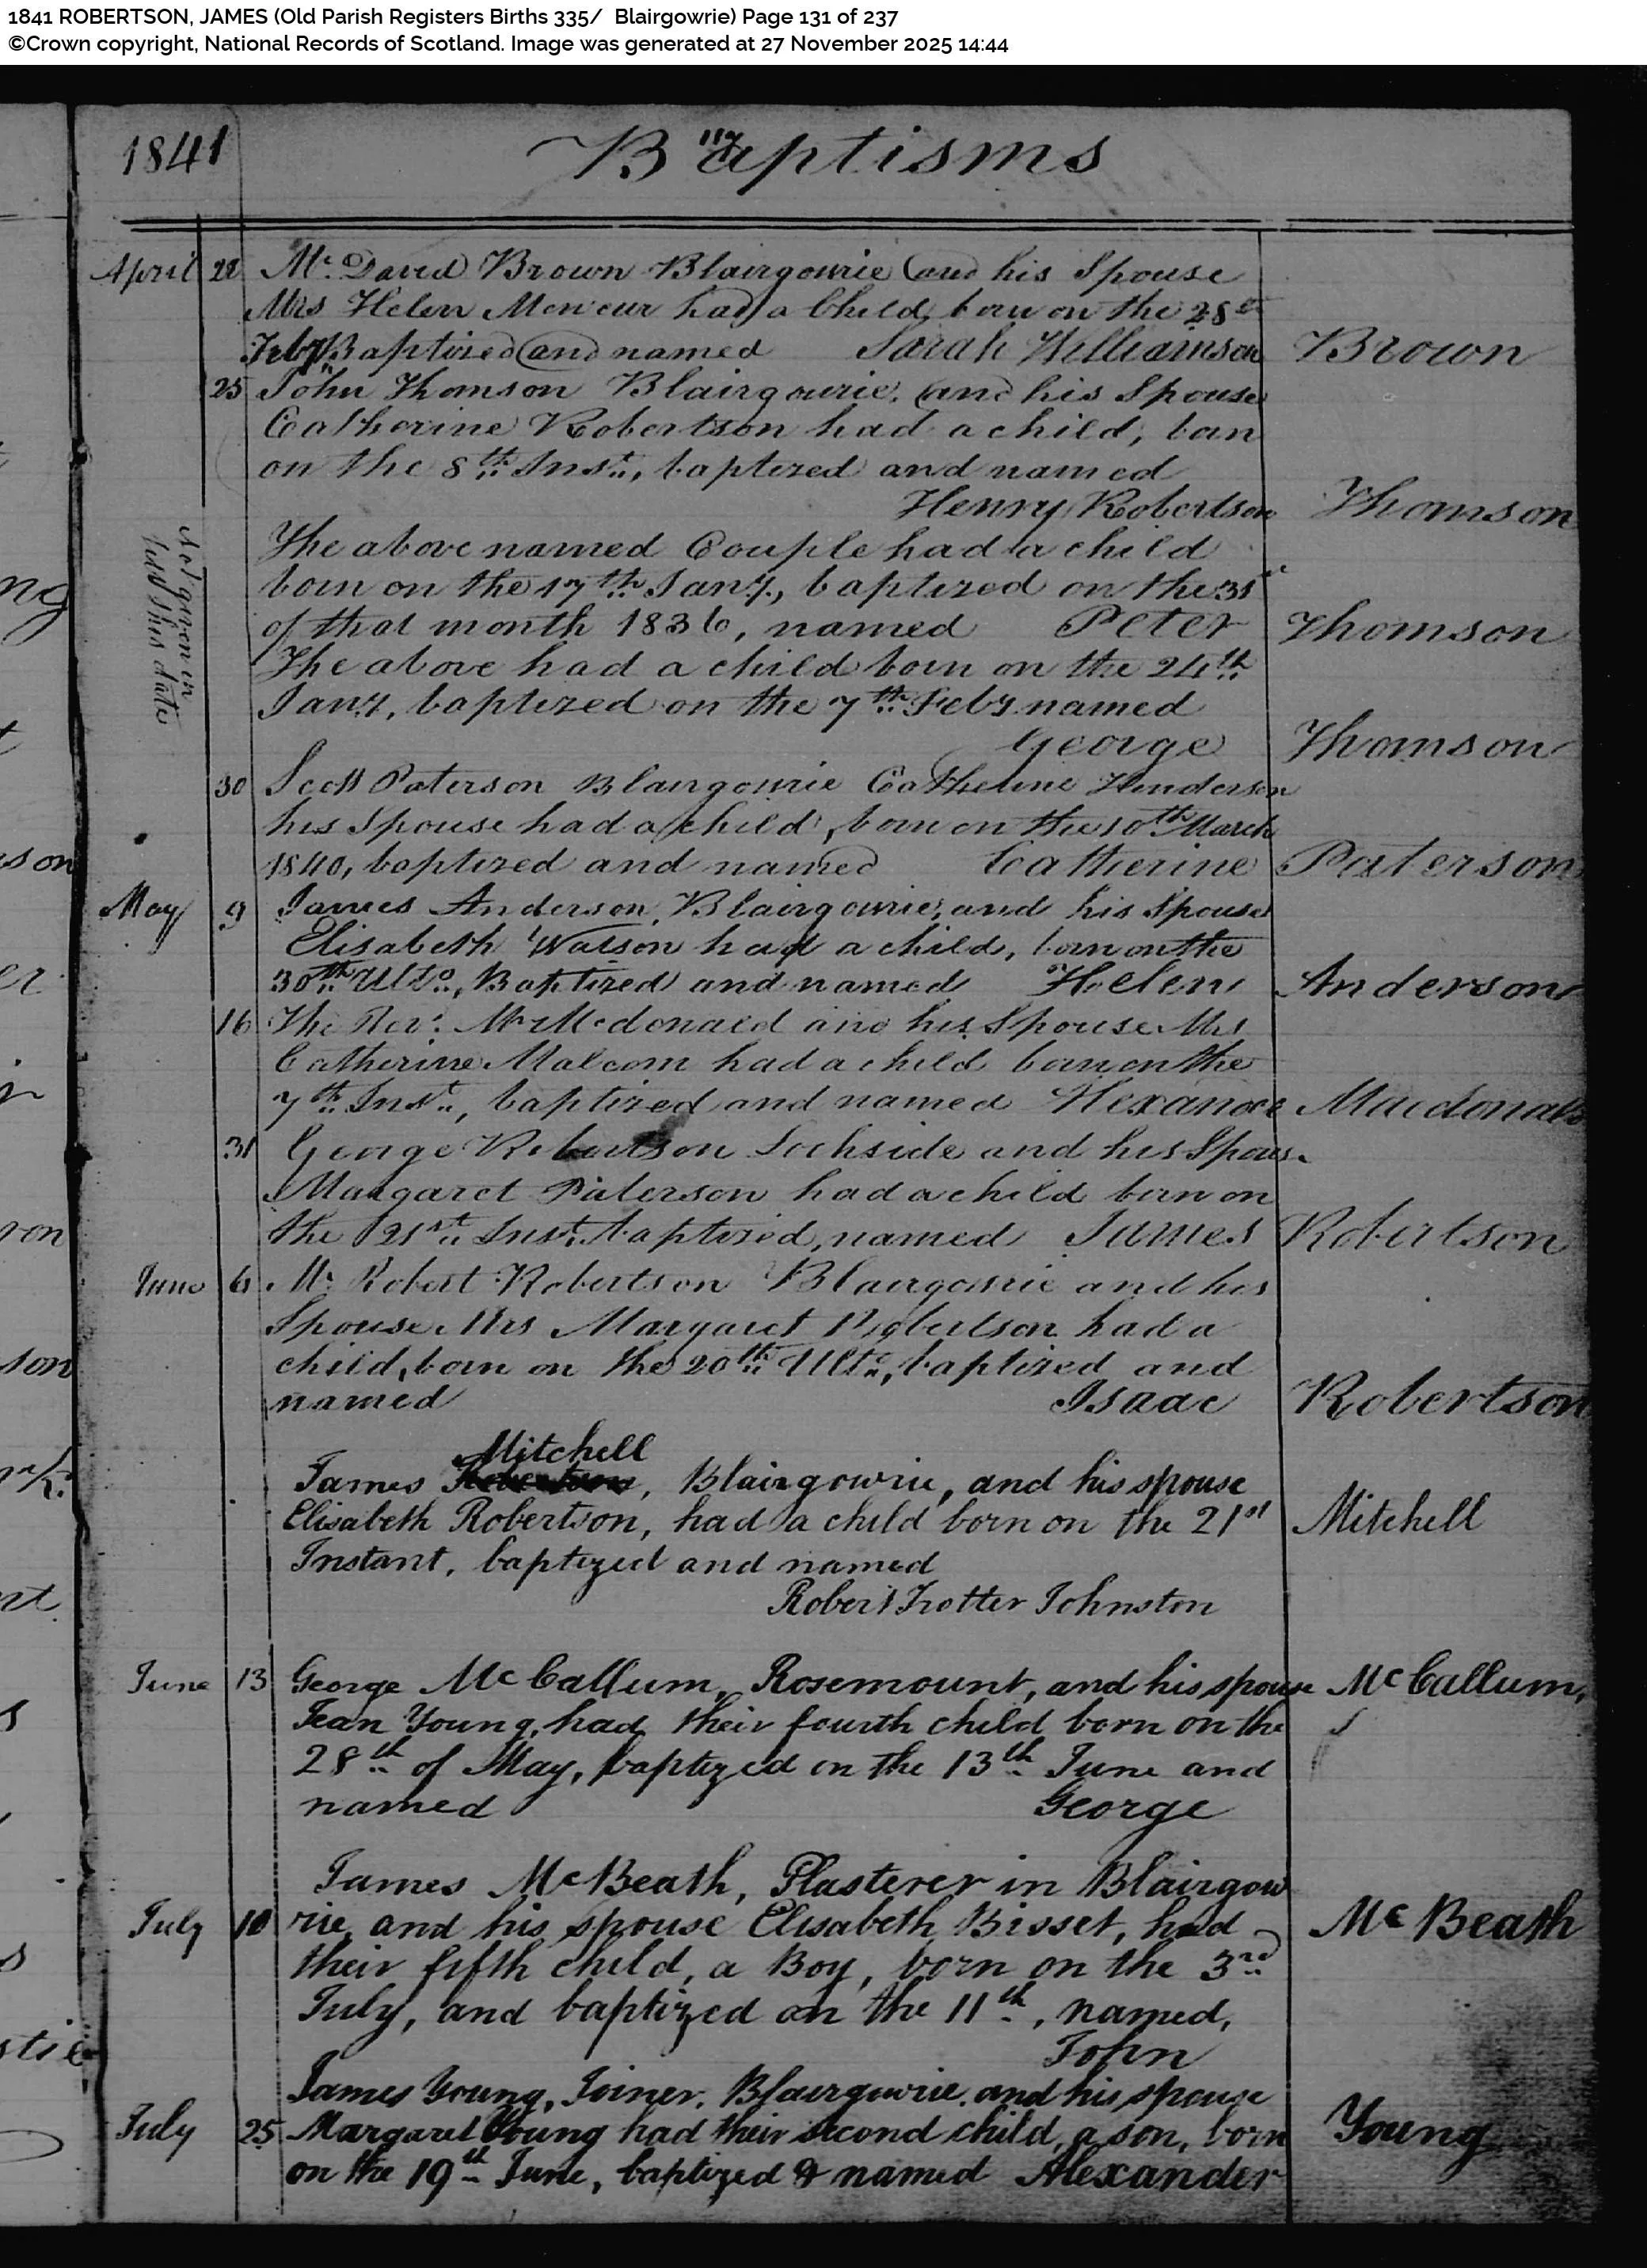 1841 ROBERTSON, JAMES (Old Parish Registers Births 335/ Blairgowrie) Page 131 of 237
©Crown copyright, National Records of Scotland. Image was generated at 27 November 2025 14:44
1841 Baptisms
117
April 22 Mr. David Brown Blairgowrie and his Spouse
Mrs Helen had a Child, born on the 28th
Feby. Baptized and named Sarah Williamson Brown
25 John Thomson Blairgowrie, and his Spouse
Catherine Robertson had a child, born
on the 8th Inst., baptized and named
Henry Robertson Thomson
Not given in
until this date
The above named Couple had a child
born on the 17th Jany., baptized on the 31st
of that month 1836, named Peter Thomson
The above had a child born on the 24th
Jany, baptized on the 7th Feby named
George Thomson
30 Scott Paterson Blairgowrie Catherine Henderson
his Spouse had a child, born on the 10th March
1840, baptized and named Catherine Paterson
May 9 James Anderson, Blairgowrie, and his Spouse
Elisabeth Watson had a child, born on the
30th Ulto., Baptized and named Helen Anderson
16 The Rev. Mr Mcdonald and his Spouse Mrs
Catherine Malcom had a child born on the
7th Inst., baptized and named Alexander Macdonald
31 George Robertson Lochside and his Spouse
Margaret Paterson had a child born on
the 21st Inst. baptized, named James Robertson
June 6 Mr. Robert Robertson Blairgowrie and his
Spouse Mrs Margaret Robertson had a
child, born on the 20th Ulto., baptized and
named Isaac Robertson
Mitchell
James Robertson, Blairgowrie, and his spouse
Elisabeth Robertson, had a child born on the 21st Mitchell
Instant, baptized and named
Robert Trotter Johnston
June 13 George McCallum, Rosemount, and his spouse McCallum,
Jean Young, had their fourth child born on the
28th of May, baptized on the 13th June and
named George
James McBeath, Plasterer in Blairgow
July 10 rie, and his spouse Elisabeth Bisset, had McBeath
their fifth child, a Boy, born on the 3rd
July, and baptized on the 11th, named,
John
James Young, Joiner, Blairgowrie, and his spouse
July 25 Margaret Young had their second child, a son, born Young
on the 19th June, baptized & named Alexander